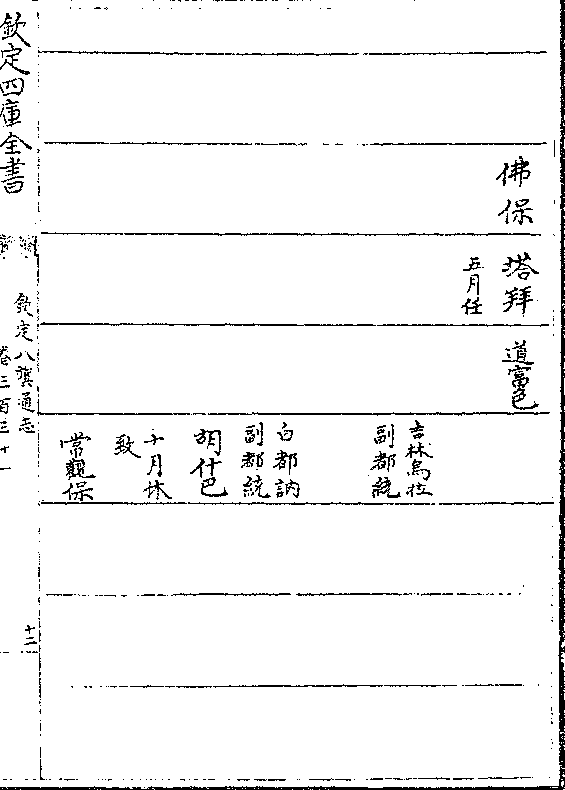 佛保
塔拜
五月任
道富色
吉林烏拉
副都統
白都訥
副都統
胡什巴
十月休
致
常觀保
欽定四庫全書
欽定八旗通志
卷三百三十一
十二